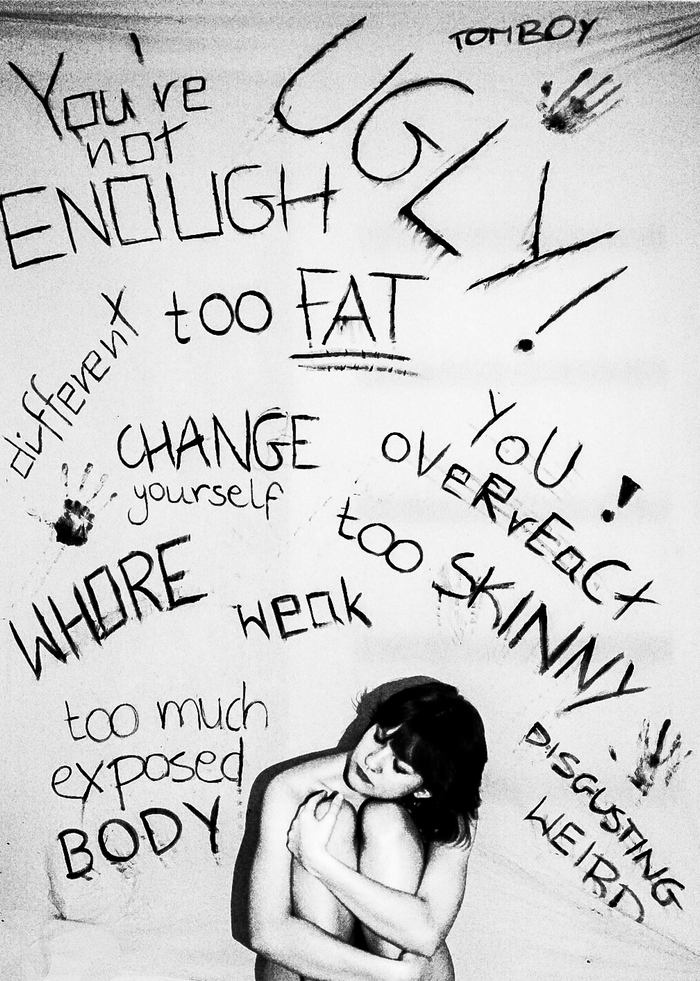 TOMBOY
You're
not
ENOUGH
UGLY!
too FAT
different
CHANGE
yourself
YOU
OVERREaCT!
too SKINNY
WHORE
weak
too much
exposed
BODY
DISGUSTING
WEIRD